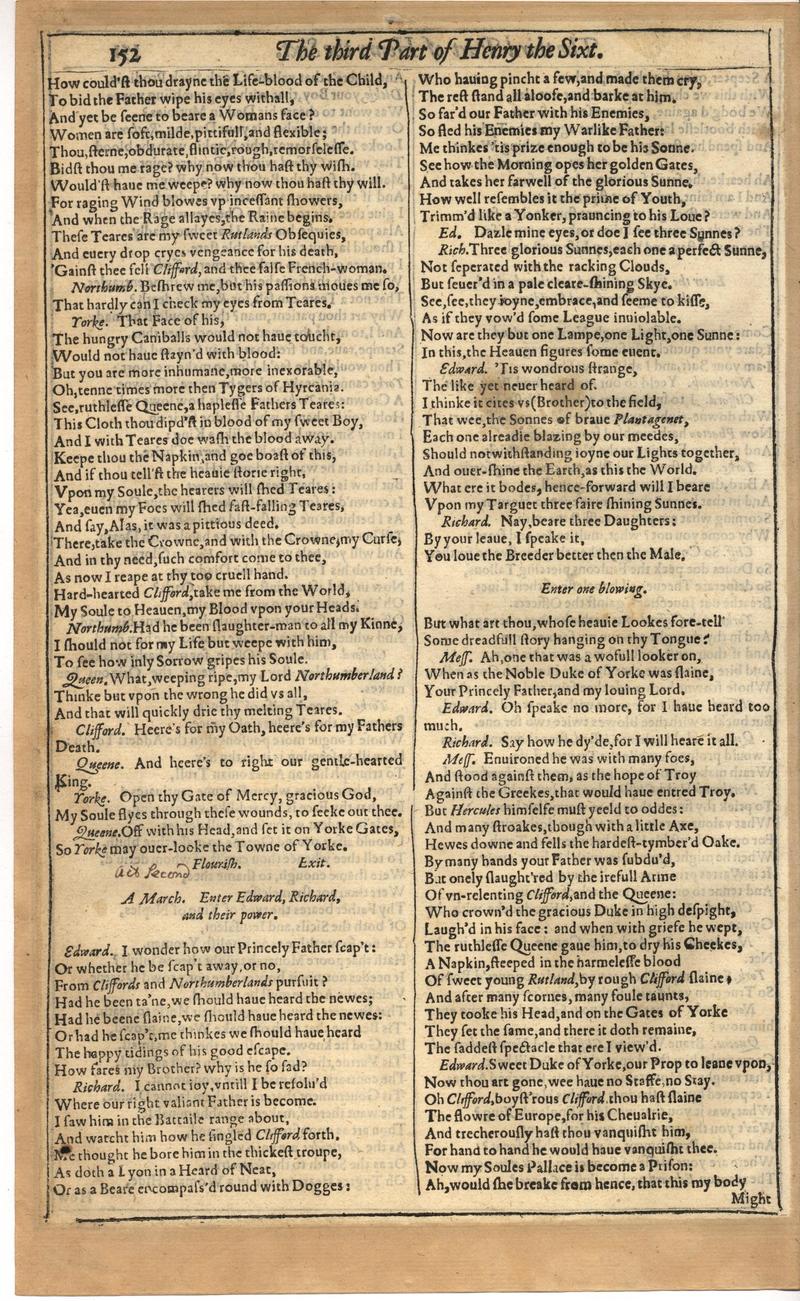 152 The third Part of Henry the Sixt.
How could'ſt thou drayne the Life-blood of the Child,
To bid the Father wipe his eyes withall,
And yet be ſeene to beare a Womans face?
Women are ſoft, milde, pittifull, and flexible;
Thou, ſterne, obdurate, flintie, rough, remorſeleſſe.
Bidſt thou me rage? why now thou haſt thy wiſh.
Would'ſt haue me weepe? why now thou haſt thy will.
For raging Wind blowes vp inceſſant ſhowers,
And when the Rage allayes, the Raine begins.
Theſe Teares are my ſweet Rutlands Obſequies,
And euery drop cryes vengeance for his death,
'Gainſt thee fell Clifford, and thee falſe French-woman.
Northumb. Beſhrew me, but his paſſions moues me ſo,
That hardly can I check my eyes from Teares.
Yorke. That Face of his,
The hungry Caniballs would not haue toucht,
Would not haue ſtayn'd with blood:
But you are more inhumane, more inexorable,
Oh, tenne times more then Tygers of Hyrcania.
See, ruthleſſe Queene, a hapleſſe Fathers Teares:
This Cloth thou dipd'ſt in blood of my ſweet Boy,
And I with Teares doe waſh the blood away.
Keepe thou the Napkin, and goe boaſt of this,
And if thou tell'ſt the heauie ſtorie right,
Vpon my Soule, the hearers will ſhed Teares:
Yea, euen my Foes will ſhed faſt-falling Teares,
And ſay, Alas, it was a pittious deed.
There, take the Crowne, and with the Crowne, my Curſe,
And in thy need, ſuch comfort come to thee,
As now I reape at thy too cruell hand.
Hard-hearted Clifford, take me from the World,
My Soule to Heauen, my Blood vpon your Heads.
Northumb. Had he been ſlaughter-man to all my Kinne,
I ſhould not for my Life but weepe with him,
To ſee how inly Sorrow gripes his Soule.
Queen. What, weeping ripe, my Lord Northumberland?
Thinke but vpon the wrong he did vs all,
And that will quickly drie thy melting Teares.
Clifford. Heere's for my Oath, heere's for my Fathers
Death.
Queene. And heere's to right our gentle-hearted
King.
Yorke. Open thy Gate of Mercy, gracious God,
My Soule flyes through theſe wounds, to ſeeke out thee.
Queene. Off with his Head, and ſet it on Yorke Gates,
So Yorke may ouer-looke the Towne of Yorke.
Flouriſh. Exit.
Second
A March. Enter Edward, Richard,
and their power.
Edward. I wonder how our Princely Father ſcap't:
Or whether he be ſcap't away, or no,
From Cliffords and Northumberlands purſuit?
Had he been ta'ne, we ſhould haue heard the newes;
Had he beene ſlaine, we ſhould haue heard the newes:
Or had he ſcap't, me thinkes we ſhould haue heard
The happy tidings of his good eſcape.
How fares my Brother? why is he ſo ſad?
Richard. I cannot ioy, vntill I be reſolu'd
Where our right valiant Father is become.
I ſaw him in the Battaile range about,
And watcht him how he ſingled Clifford forth.
Me thought he bore him in the thickeſt troupe,
As doth a Lyon in a Heard of Neat,
Or as a Beare encompaſs'd round with Dogges:
Who hauing pincht a few, and made them cry,
The reſt ſtand all aloofe, and barke at him.
So far'd our Father with his Enemies,
So fled his Enemies my Warlike Father:
Me thinkes 'tis prize enough to be his Sonne.
See how the Morning opes her golden Gates,
And takes her farwell of the glorious Sunne.
How well reſembles it the prime of Youth,
Trimm'd like a Yonker, prauncing to his Loue?
Ed. Dazle mine eyes, or doe I ſee three Sunnes?
Rich. Three glorious Sunnes, each one a perfect Sunne,
Not ſeperated with the racking Clouds,
But ſeuer'd in a pale cleare-ſhining Skye.
See, ſee, they ioyne, embrace, and ſeeme to kiſſe,
As if they vow'd ſome League inuiolable.
Now are they but one Lampe, one Light, one Sunne:
In this, the Heauen figures ſome euent.
Edward. 'Tis wondrous ſtrange,
The like yet neuer heard of.
I thinke it cites vs (Brother) to the field,
That wee, the Sonnes of braue Plantagenet,
Each one alreadie blazing by our meedes,
Should notwithſtanding ioyne our Lights together,
And ouer-ſhine the Earth, as this the World.
What ere it bodes, hence-forward will I beare
Vpon my Targuet three faire ſhining Sunnes.
Richard. Nay, beare three Daughters:
By your leaue, I ſpeake it,
You loue the Breeder better then the Male.
Enter one blowing.
But what art thou, whoſe heauie Lookes fore-tell
Some dreadfull ſtory hanging on thy Tongue?
Meſſ. Ah, one that was a wofull looker on,
When as the Noble Duke of Yorke was ſlaine,
Your Princely Father, and my louing Lord.
Edward. Oh ſpeake no more, for I haue heard too
much.
Richard. Say how he dy'de, for I will heare it all.
Meſſ. Enuironed he was with many foes,
And ſtood againſt them, as the hope of Troy
Againſt the Greekes, that would haue entred Troy.
But Hercules himſelfe muſt yeeld to oddes:
And many ſtroakes, though with a little Axe,
Hewes downe and fells the hardeſt-tymber'd Oake.
By many hands your Father was ſubdu'd,
But onely ſlaught'red by the irefull Arme
Of vn-relenting Clifford, and the Queene:
Who crown'd the gracious Duke in high deſpight,
Laugh'd in his face: and when with griefe he wept,
The ruthleſſe Queene gaue him, to dry his Cheekes,
A Napkin, ſteeped in the harmeleſſe blood
Of ſweet young Rutland, by rough Clifford ſlaine:
And after many ſcornes, many foule taunts,
They tooke his Head, and on the Gates of Yorke
They ſet the ſame, and there it doth remaine,
The ſaddeſt ſpectacle that ere I view'd.
Edward. Sweet Duke of Yorke, our Prop to leane vpon,
Now thou art gone, wee haue no Staffe, no Stay.
Oh Clifford, boyſt'rous Clifford, thou haſt ſlaine
The flowre of Europe, for his Cheualrie,
And trecherouſly haſt thou vanquiſht him,
For hand to hand he would haue vanquiſht thee.
Now my Soules Pallace is become a Priſon:
Ah, would ſhe breake from hence, that this my body
Might